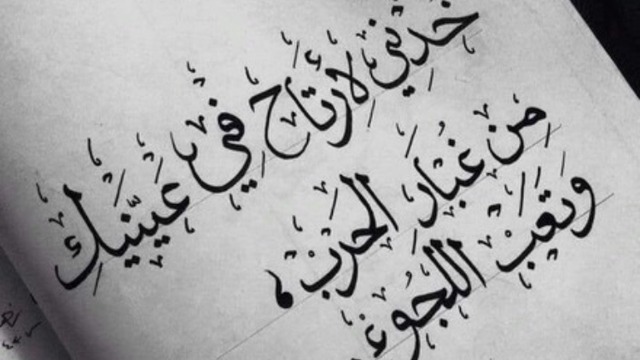 خذيني لأرتاح في عينيك
من غبار الحرب ،
وتعب اللجوء